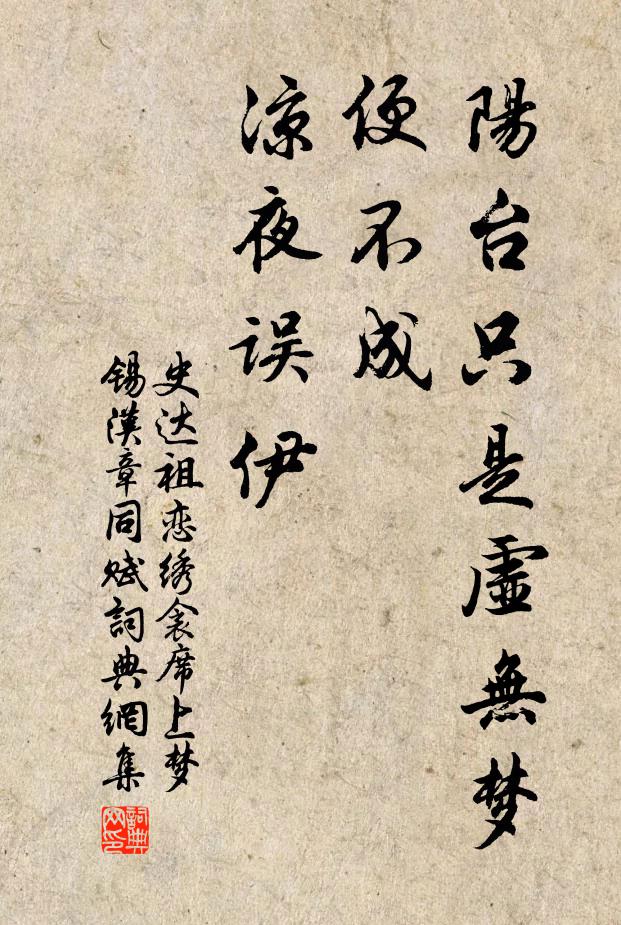 陽台只是虛無梦
便不成
凉夜误伊
史达祖恋绣衾席上梦
锡漢章同赋詞典網集
詞典
网印